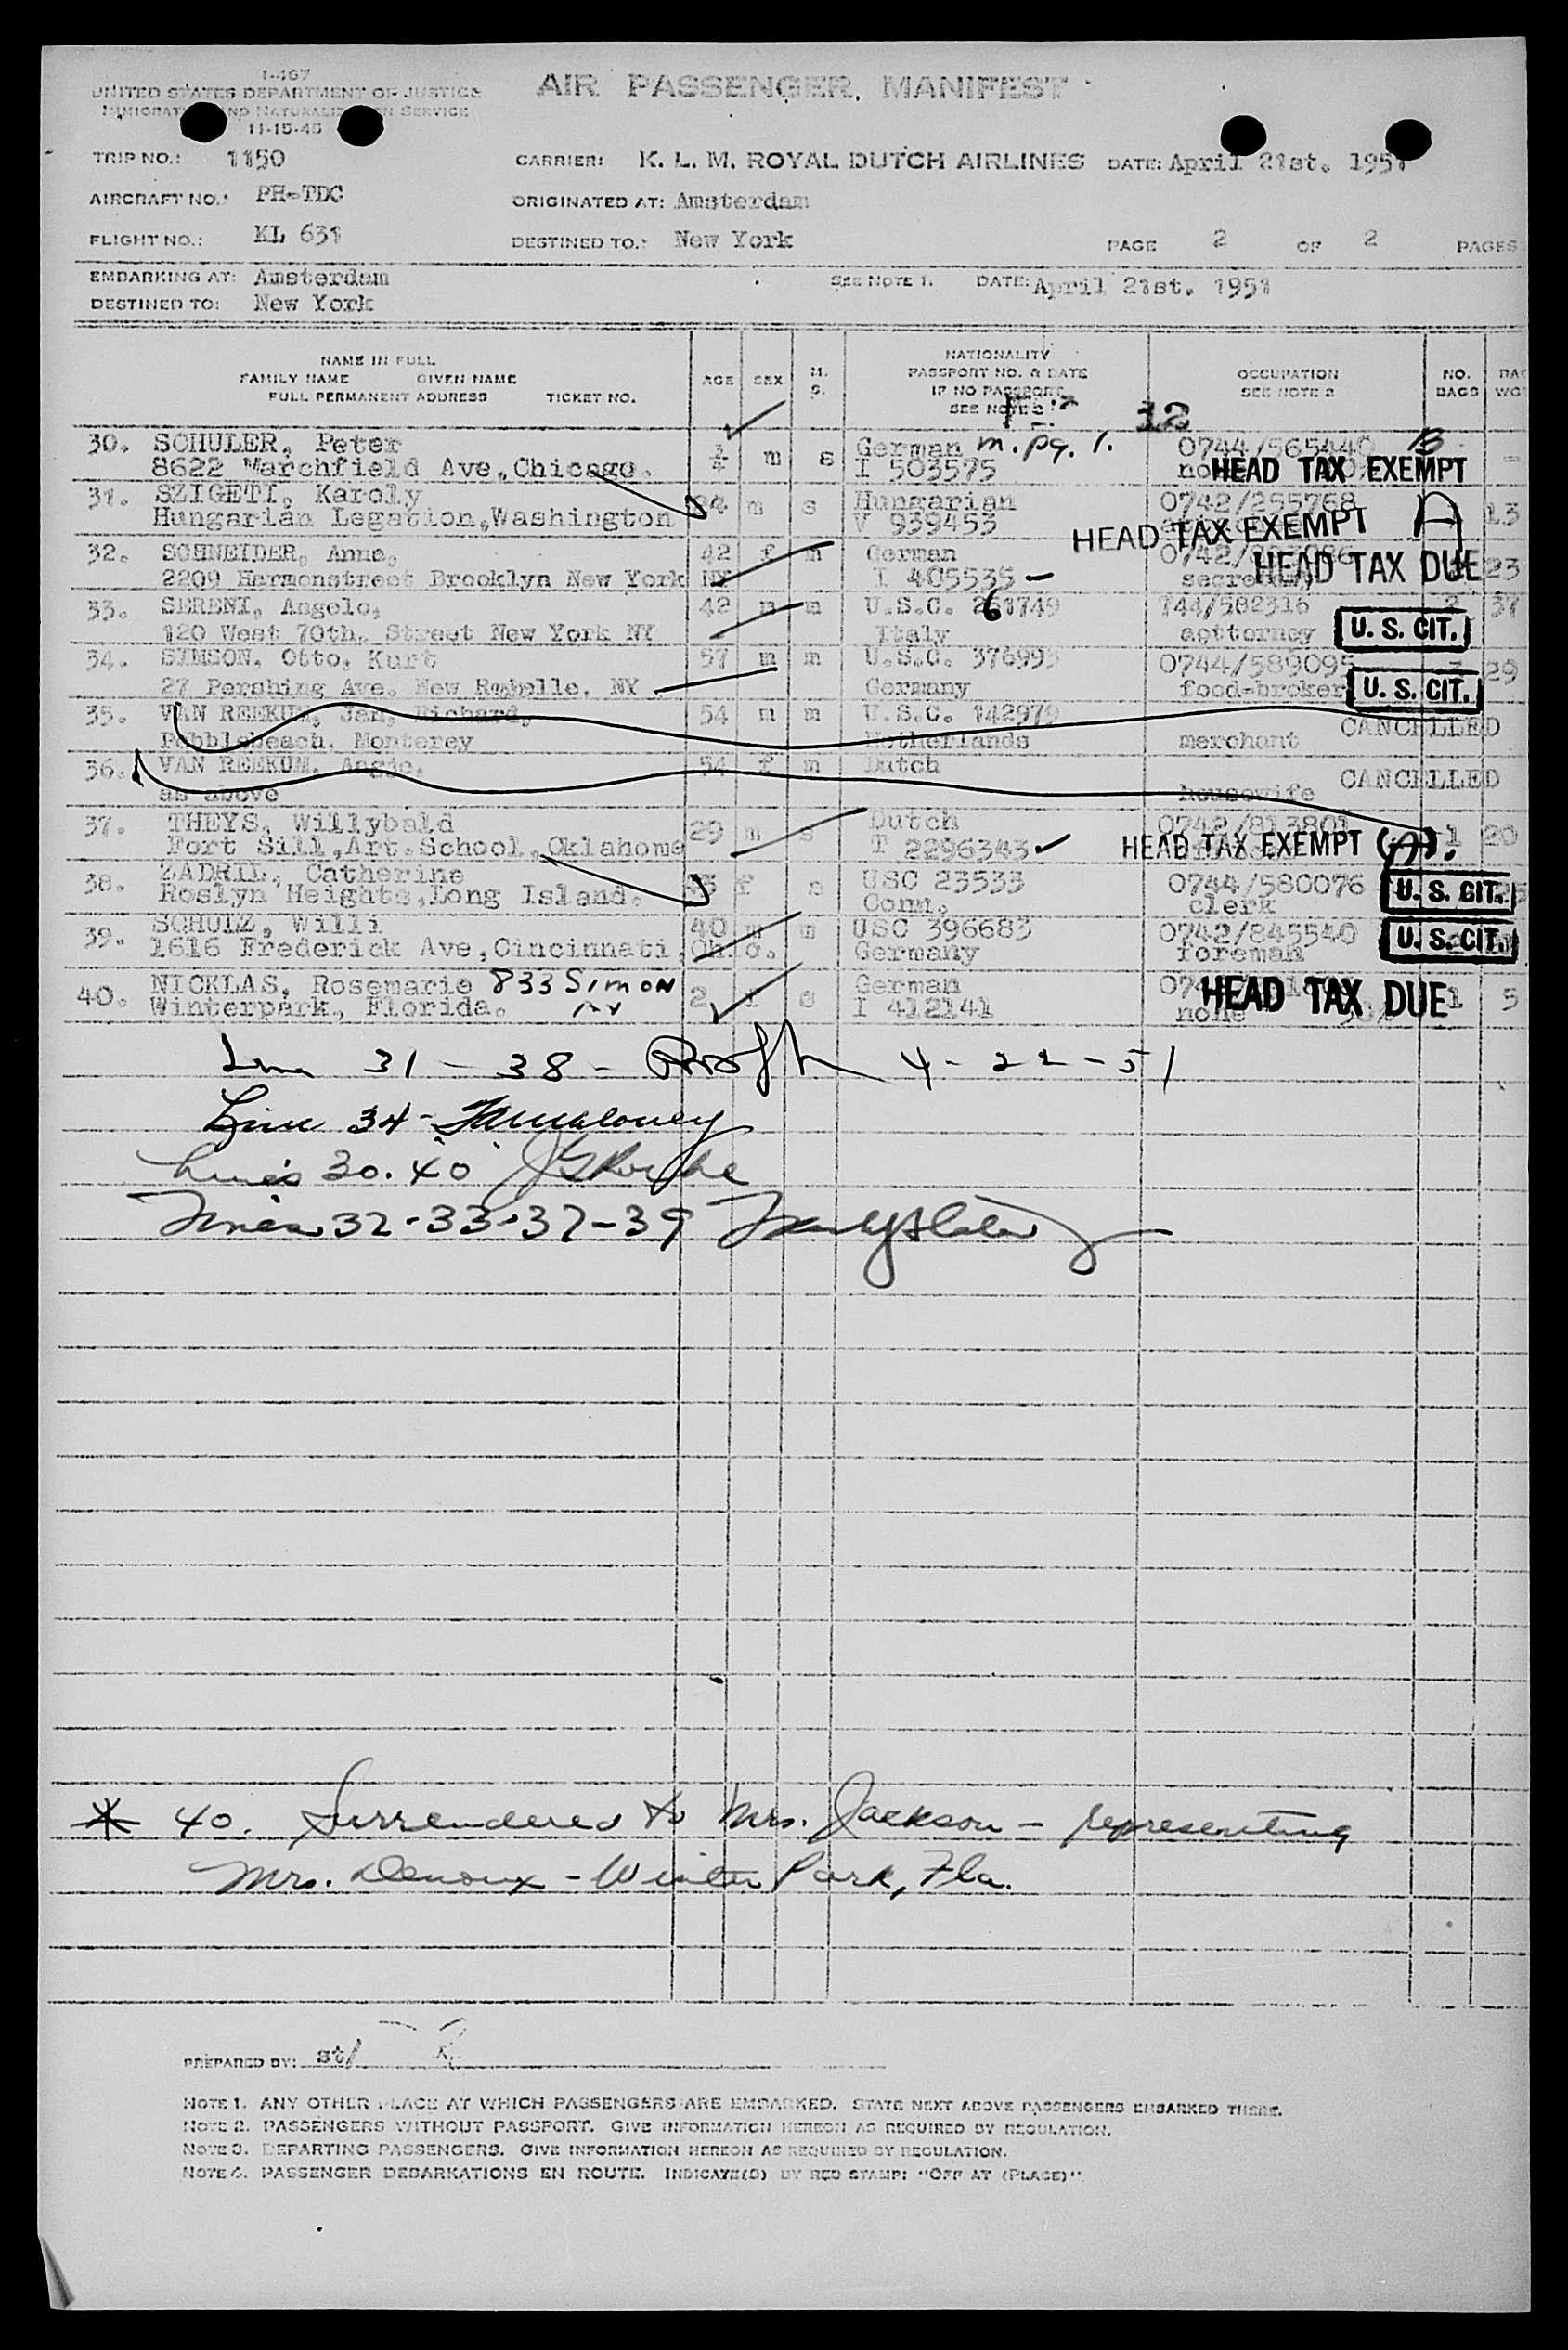 1-467
UNITED STATES DEPARTMENT OF JUSTICE
AIR PASSENGER MANIFEST
IMMIGRATION AND NATURALIZATION SERVICE
11-15-45
TRIP NO.: 1150 CARRIER: K. L. M. ROYAL DUTCH AIRLINES DATE: April 21st. 1951
AIRCRAFT NO.: PH-TDC ORIGINATED AT: Amsterdam
FLIGHT NO.: KL 631 DESTINED TO.: New York PAGE 2 OF 2 PAGES
EMBARKING AT: Amsterdam SEE NOTE 1. DATE: April 21st. 1951
DESTINED TO: New York
NAME IN FULL
FAMILY NAME GIVEN NAME
FULL PERMANENT ADDRESS TICKET NO.
AGE SEX M. S.
NATIONALITY
PASSPORT NO. & DATE
IF NO PASSPORT
SEE NOTE 2
OCCUPATION
SEE NOTE 2
NO. BAGS
12
30. SCHULER, Peter m s German m. pg. 1. 0744/565440 B
8622 Marchfield Ave, Chicago. I 503575 HEAD TAX EXEMPT
31. SZIGETI, Karoly m s Hungarian 0742/255768 13
Hungarian Legation, Washington V 939453 HEAD TAX EXEMPT A
32. SCHNEIDER, Anne, 42 f m German 23
2209 Harmonstreet Brooklyn New York NY I 405535 HEAD TAX DUE
33. SERENI, Angelo, 42 m m U.S.C. 261749 744/582316 2 37
120 West 70th. Street New York NY Italy aottorney U. S. CIT.
34. SIMSON, Otto, Kurt 57 m m U.S.C. 376993 0744/589095 29
27 Pershing Ave. New Rochelle, NY Germany food-broker U. S. CIT.
35. VAN REEKUM, Jan, Richard, 54 m m U.S.C. 142979 CANCELLED
Pebblebeach. Monterey Netherlands merchant
36. VAN REEKUM, Angie, 54 f m Dutch CANCELLED
as above housewife
37. THEYS, Willybald 29 m s Dutch 0742/813801 1 20
Fort Sill, Art. School, Oklahoma T 2296343 HEAD TAX EXEMPT (A).
38. ZADRIL, Catherine f s USC 23533 0744/580076
Roslyn Heights, Long Island. Conn. clerk U. S. CIT.
39. SCHULZ, Willi 40 m m USC 396683 0742/845540
1616 Frederick Ave, Cincinnati, Oh. o. Germany foreman U. S. CIT.
40. NICKLAS, Rosemarie 833 Simon 2 f s German 1 5
Winterpark, Florida. Av I 412141 none HEAD TAX DUE
31 - 38 - 4-22-51
Line 34 -
Lines 30. 40
Lines 32-33-37-39
* 40. Surrendered to Mrs. Jackson - representing
Mrs. - Winter Park, Fla.
PREPARED BY: st/
NOTE 1. ANY OTHER PLACE AT WHICH PASSENGERS ARE EMBARKED. STATE NEXT ABOVE PASSENGERS EMBARKED THERE.
NOTE 2. PASSENGERS WITHOUT PASSPORT. GIVE INFORMATION HEREON AS REQUIRED BY REGULATION.
NOTE 3. DEPARTING PASSENGERS. GIVE INFORMATION HEREON AS REQUIRED BY REGULATION.
NOTE 4. PASSENGER DEBARKATIONS EN ROUTE. INDICATE(D) BY RED STAMP: "OFF AT (PLACE)"